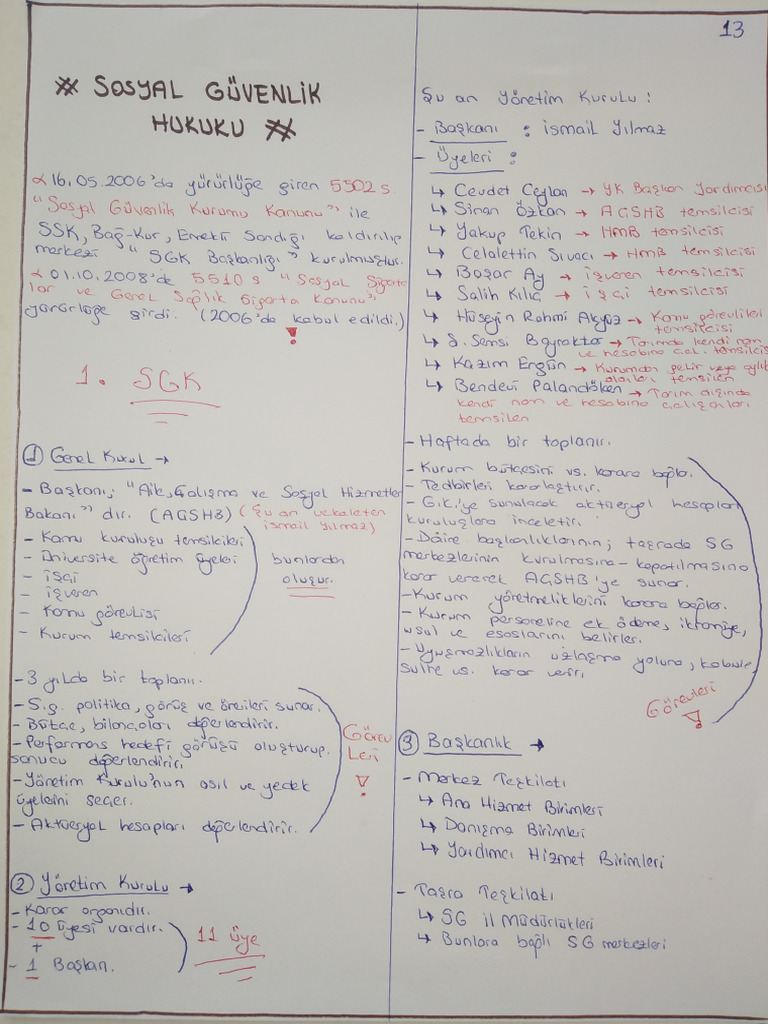 13
# SOSYAL GÜVENLİK
HUKUKU #
α 16.05.2006'da yürürlüğe giren 5502 s.
"Sosyal Güvenlik Kurumu Kanunu" ile
SSK, Bağ-Kur, Emekli Sandığı kaldırılıp
merkezi "SGK Başkanlığı" kurulmuştur.
α 01.10.2008'de 5510 s "Sosyal Sigorta-
lar ve Genel Sağlık Sigorta Kanunu"
yürürlüğe girdi. (2006'da kabul edildi.)
!
1. SGK
① Genel Kurul →
- Başkanı; "Aile, Çalışma ve Sosyal Hizmetler
Bakanı" dır. (AÇSHB) (Şu an vekaleten
ismail yılmaz)
- Kamu kuruluşu temsilcileri
- Üniversite öğretim üyeleri
- işçi
- işveren
- Kamu görevlisi
- Kurum temsilcileri
bunlardan
oluşur.
- 3 yılda bir toplanır.
- S.g. politika, görüş ve önerileri sunar.
- Bütçe, bilançoları değerlendirir.
- Performans hedefi görüşü oluşturup,
sonucu değerlendirir.
- Yönetim Kurulu'nun asıl ve yedek
üyelerini seçer.
- Aktüeryal hesapları değerlendirir.
GÖREV
LERİ
!
② Yönetim Kurulu →
- Karar organıdır.
- 10 üyesi vardır.
+
- 1 Başkan.
11 üye
Şu an Yönetim Kurulu:
- Başkanı : ismail Yılmaz
- Üyeleri :
↳ Cevdet Ceylan → YK Başkan Yardımcısı
↳ Sinan Özkan → AÇSHB temsilcisi
↳ Yakup Tekin → HMB temsilcisi
↳ Celalettin Sıvacı → HMB temsilcisi
↳ Başar Ay → işveren temsilcisi
↳ Salih Kılıç → işçi temsilcisi
↳ Hüseyin Rahmi Akyüz → Kamu görevlileri
temsilcisi
↳ Ş. Şemsi Bayraktar → Tarımda kendi nam
ve hesabına çal. temsilcisi
↳ Kazım Ergün → Kurumdan gelir veya aylık
alanları temsilen
↳ Bendevi Palandöken → Tarım dışında
kendi nam ve hesabına çalışanları
temsilen
- Haftada bir toplanır.
- Kurum bütçesini vs. karara bağlar.
- Tedbirleri kararlaştırır.
- G.K.'ye sunulacak aktüeryal hesapları
kuruluşlara inceletir.
- Daire başkanlıklarının; taşrada SG
merkezlerinin kurulmasına - kapatılmasına
karar vererek AÇSHB'ye sunar.
- Kurum yönetmeliklerini karara bağlar.
- Kurum personeline ek ödeme, ikramiye,
usul ve esaslarını belirler.
- Uyuşmazlıkların uzlaşma yoluna, kabule
sulhe vs. karar verir.
Görevleri
!
③ Başkanlık →
- Merkez Teşkilatı
↳ Ana Hizmet Birimleri
↳ Danışma Birimleri
↳ Yardımcı Hizmet Birimleri
- Taşra Teşkilatı
↳ SG il Müdürlükleri
↳ Bunlara bağlı SG merkezleri